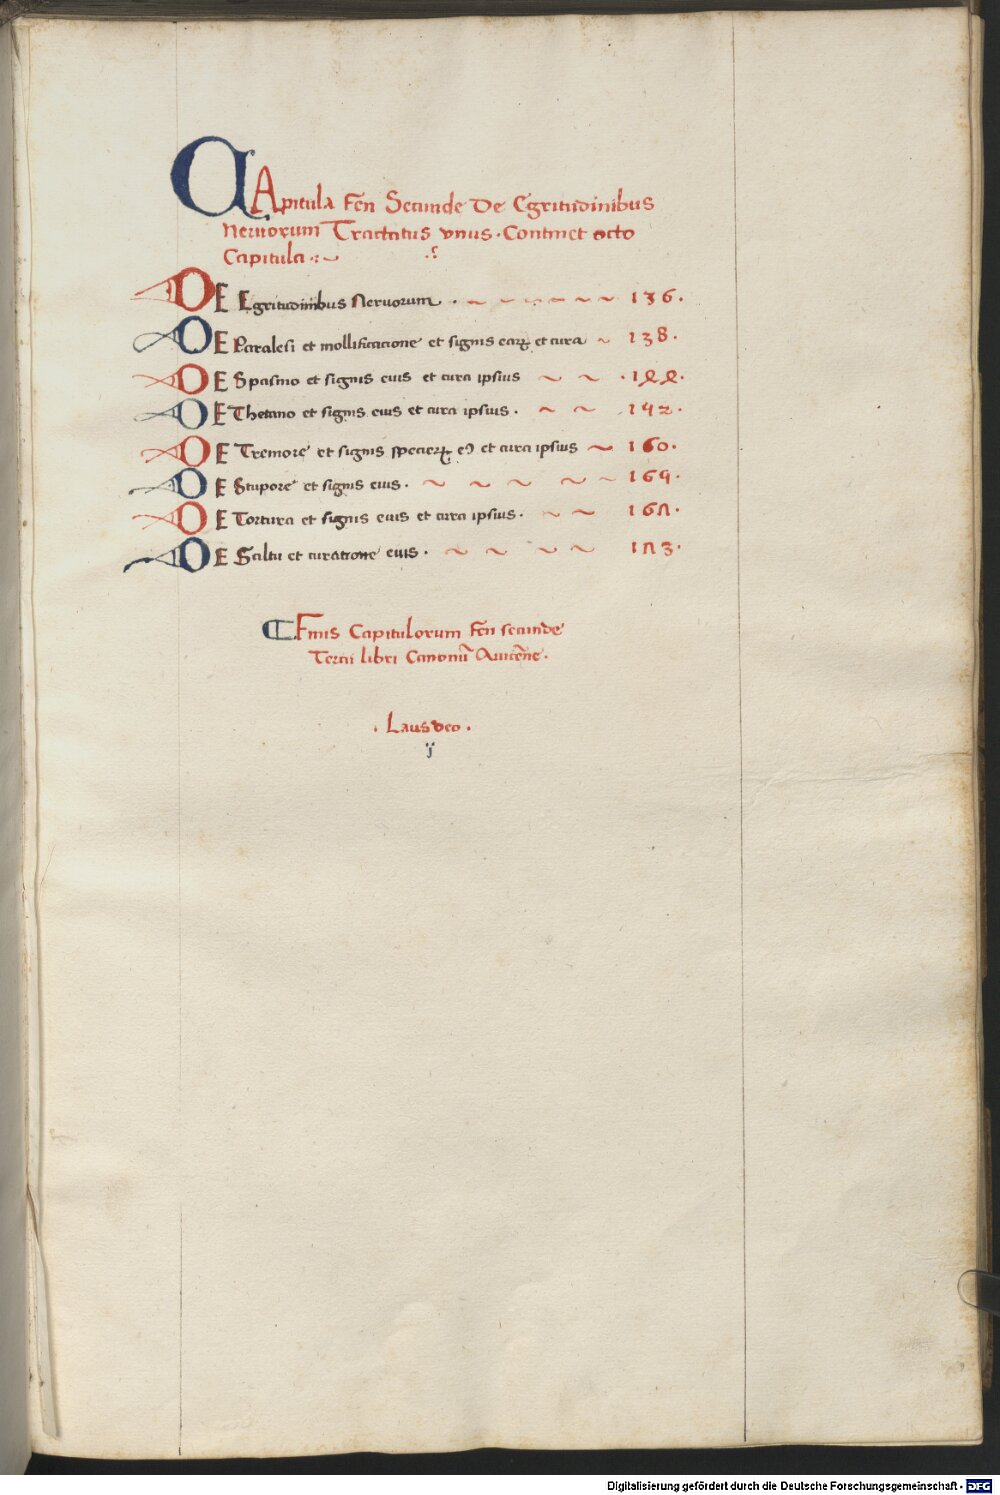 CApitula Fen Secunde De Egritudinibus
Neruorum Tractatus vnus · Continet octo
Capitula
DE Egritudinibus Neruorum · 136 ·
DE Paralesi et mollificatione et signis earꝝ et cura 138 ·
DE Spasmo et signis eius et cura ipsius · 1ꝝꝝ ·
DE Thetano et signis eius et cura ipsius · 142 ·
DE Tremore et signis specierꝝ eꝯ et cura ipsius 160 ·
DE Stupore et signis eius · 169 ·
DE Tortura et signis eius et cura ipsius · 16Λ ·
DE Saltu et curatione eius · 1Λ3 ·
¶ Finis Capitulorum Fen secunde
Tertii libri Canonū Auicēne ·
· Laus deo ·
ÿ
Digitalisierung gefördert durch die Deutsche Forschungsgemeinschaft - DFG